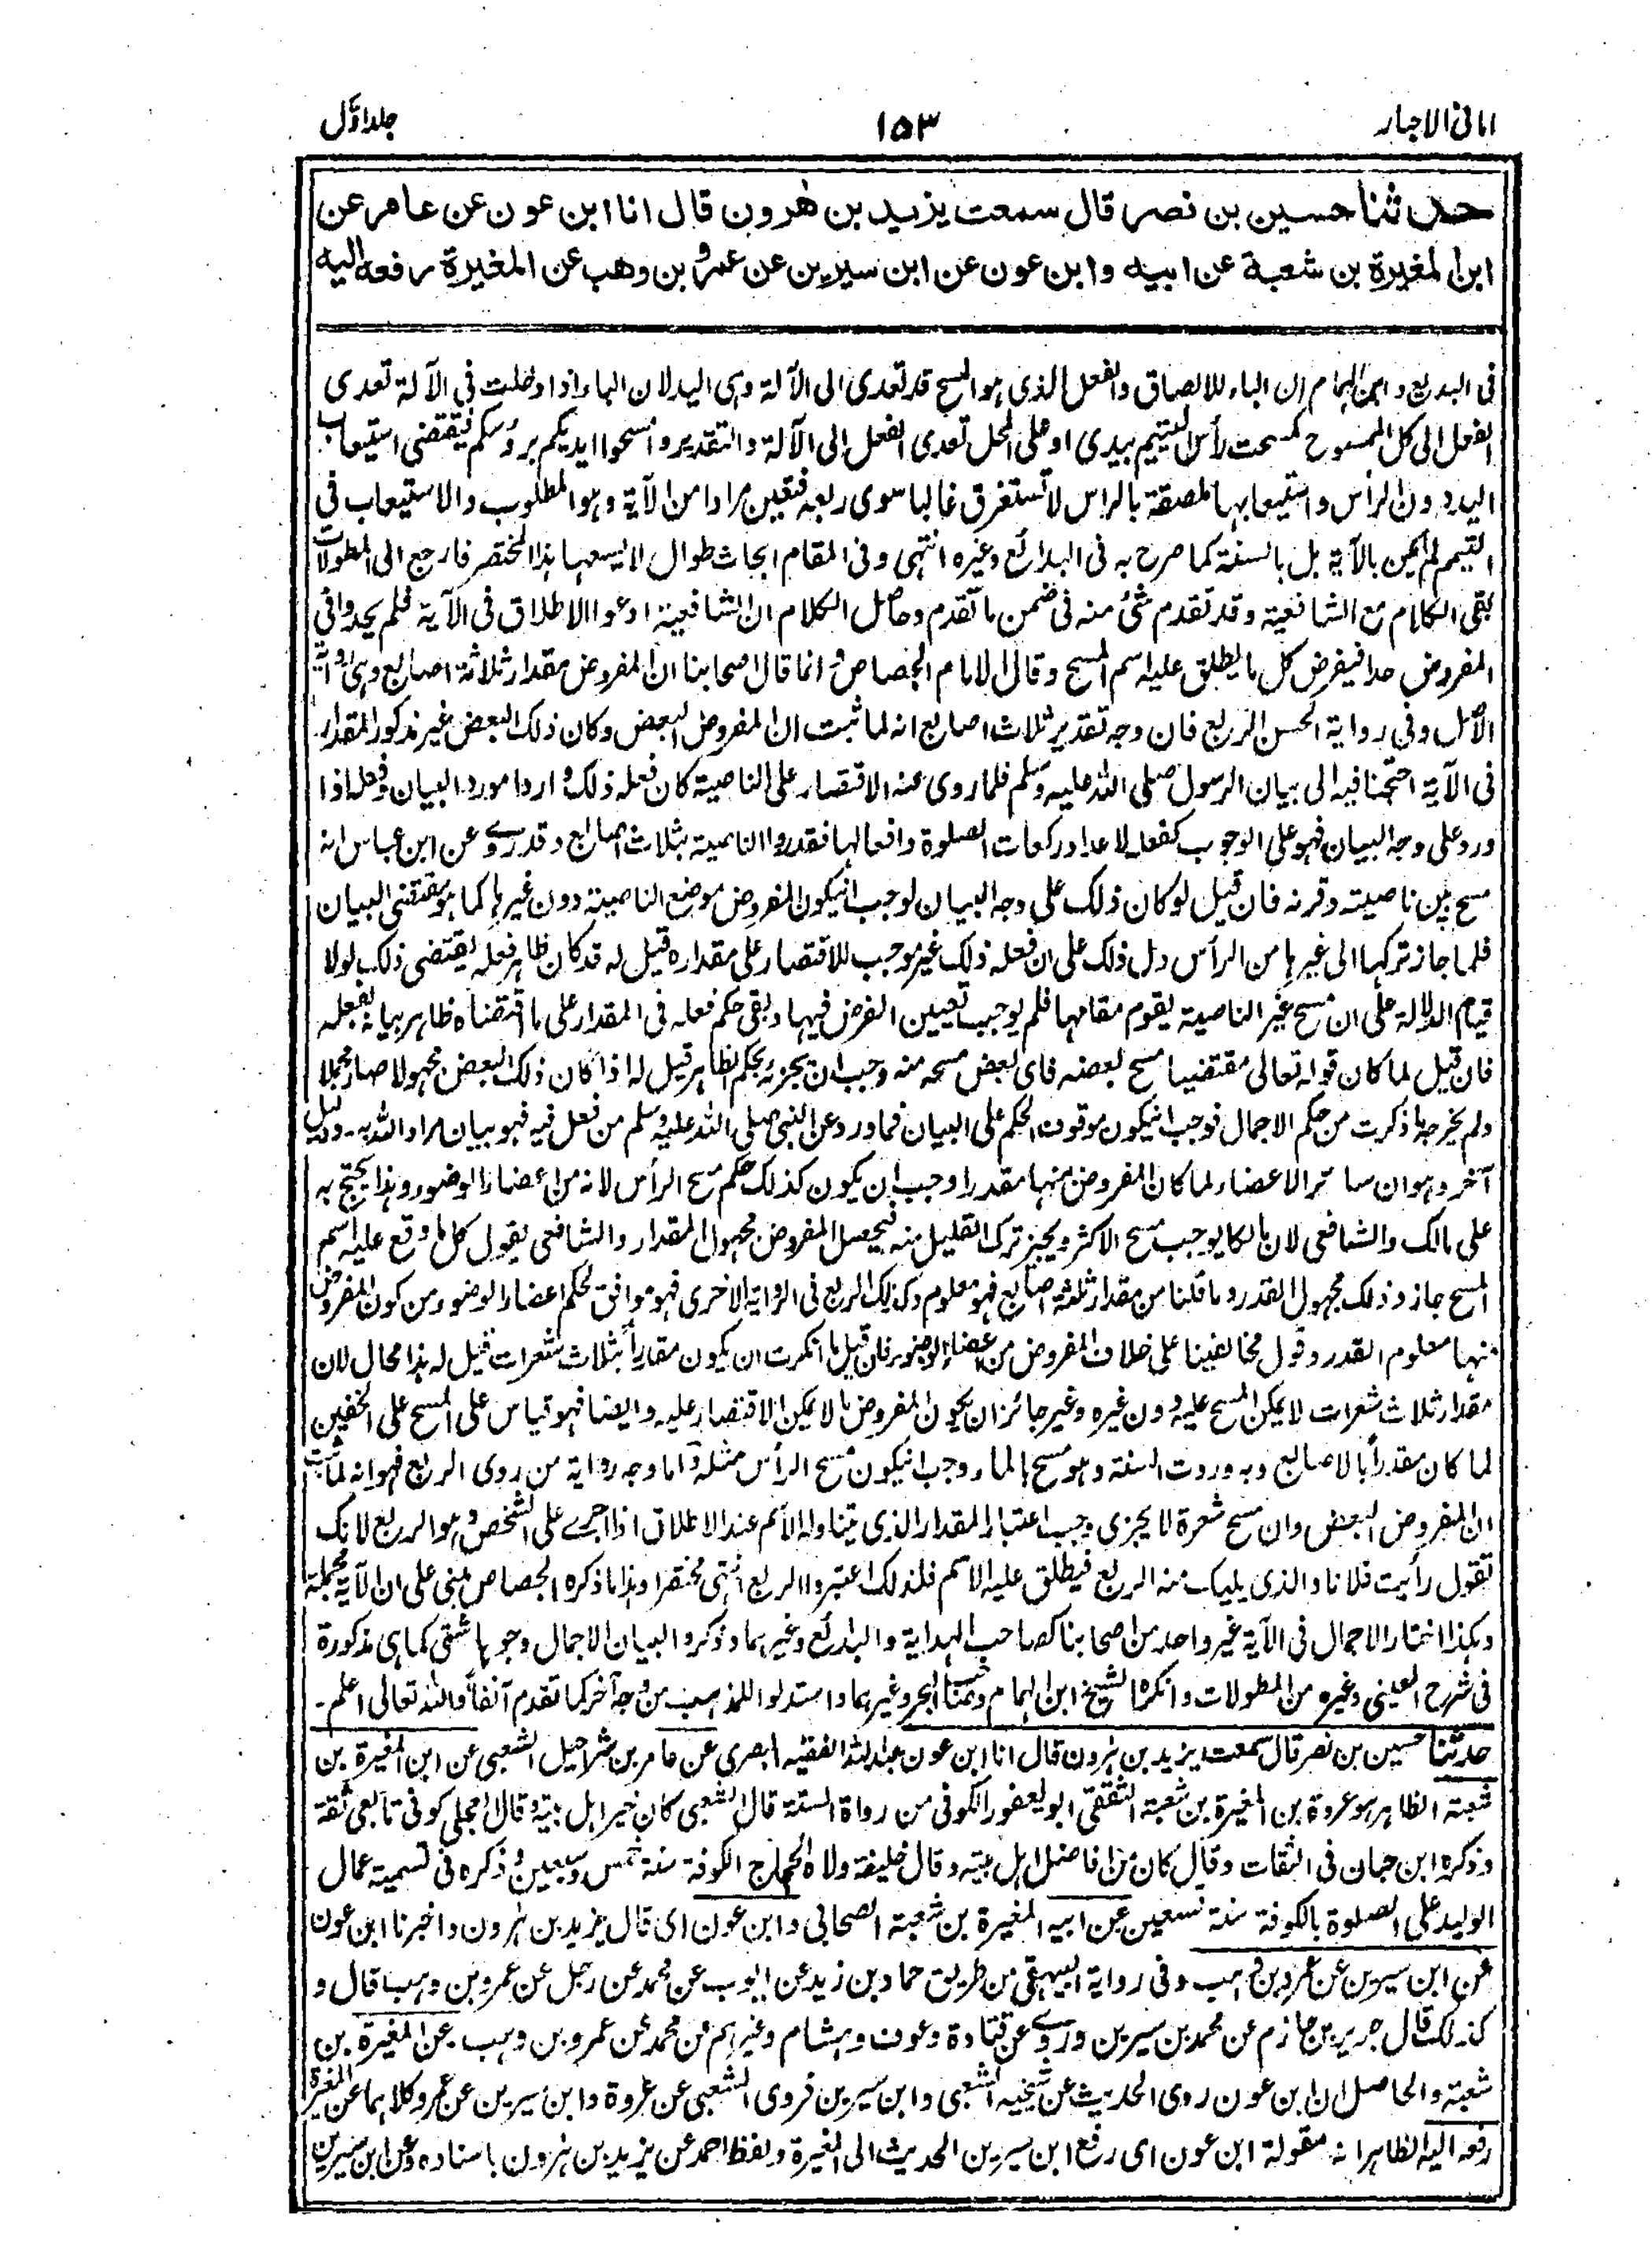 امانی الاحبار ١٥٣ جلد اوّل
حدثنا حسین بن نصر قال سمعت یزید بن هٰرون قال انا ابن عون عن عامر عن
ابن المغیرة بن شعبة عن ابیه وابن عون عن ابن سیرین عن عمرو بن وهب عن المغیرة رفعه الیه
فی البدیع وابن الہمام ان الباء للالصاق والفعل الذی ہو المسح قد تعدی الی الآلة وہی الید لان الباء اذا دخلت فی الآلة تعدی
الفعل الی کل الممسوح کمسحت رأس الیتیم بیدی او علی المحل تعدی الفعل الی الآلة والتقدیر وامسحوا ایدیکم برؤسکم فیقتضی استیعاب
الید دون الرأس واستیعابہا ملصقة بالراس لا تستغرق غالبا سوی ربعہ فتعین مرادا من الآیة وہو المطلوب والاستیعاب فی
التیمم لم یکن بالآیة بل بالسنة کما صرح بہ فی البدائع وغیرہ انتہی وفی المقام ابحاث طوال لا یسعہا ہذا المختصر فارجع الی المطولات
بقی الکلام مع الشافعیة وقد تقدم شئ منہ فی ضمن ما تقدم وحاصل الکلام ان الشافعیة ادعوا الاطلاق فی الآیة فلم یحدوا فی
المفروض حدا فیفرض کل ما یطلق علیہ اسم المسح وقال الامام الجصاص وانما قال اصحابنا ان المفروض مقدار ثلاثة اصابع وہی روایة
الاصل وفی روایة الحسن الربع فان وجہ تقدیر ثلاث اصابع انہ لما ثبت ان المفروض البعض وکان ذلک البعض غیر مذکور المقدار
فی الآیة احتجنا فیہ الی بیان الرسول صلی اللہ علیہ وسلم فلما روی عنہ الاقتصار علی الناصیة کان فعلہ ذلک واردا مورد البیان وفعلہ اذا
ورد علی وجہ البیان فہو علی الوجوب کفعلہ لاعداد رکعات الصلوة وافعالہا فقدروا الناصیة بثلاث اصابع وقد روی عن ابن عباس انہ
مسح بین ناصیتہ وقرنہ فان قیل لو کان ذلک علی وجہ البیان لوجب ان یکون المفروض موضع الناصیة دون غیرہا کما ہو مقتضی البیان
فلما جاز ترکہا الی غیرہا من الرأس دل ذلک علی ان فعلہ ذلک غیر موجب للاقتصار علی مقدارہ قیل لہ قد کان ظاہر فعلہ یقتضی ذلک لولا
قیام الدلالة علی ان مسح غیر الناصیة یقوم مقامہا فلم یوجب تعیین الفرض فیہا وبقی حکم فعلہ فی المقدار علی ما اقتضاہ ظاہر بیانہ بفعلہ
فان قیل لما کان قولہ تعالی مقتضیا مسح بعضہ فای بعض مسحہ منہ وجب ان یجزیہ بحکم الظاہر قیل لہ اذا کان ذلک البعض مجہولا صار مجملا
ولم یخرجہ ما ذکرت من حکم الاجمال فوجب ان یکون موقوف الحکم علی البیان فما ورد عن النبی صلی اللہ علیہ وسلم من فعل فیہ فہو بیان مراد اللہ بہ ۔ ودلیل
آخر وہو ان سائر الاعضاء لما کان المفروض منہا مقدرا وجب ان یکون کذلک حکم مسح الرأس لانہ من اعضاء الوضوء وہذا یحتج بہ
علی مالک والشافعی لان مالکا یوجب مسح الاکثر ویجیز ترک القلیل منہ فیحصل المفروض مجہول المقدار والشافعی یقول کل ما وقع علیہ اسم
المسح جاز وذلک مجہول القدر وما قلنا من مقدار ثلثة اصابع فہو معلوم وکذلک الربع فی الروایة الاخری فہو موافق لحکم اعضاء الوضوء من کون المفروض
منہا معلوم القدر وقول مخالفینا علی خلاف المفروض من اعضاء الوضوء فان قیل ما انکرت ان یکون مقدارا بثلاث شعرات قیل لہ ہذا محال لان
مقدار ثلاث شعرات لا یمکن المسح علیہ دون غیرہ وغیر جائز ان یکون المفروض ما لا یمکن الاقتصار علیہ وایضا فہو قیاس علی المسح علی الخفین
لما کان مقدرا بالاصابع وبہ وردت السنة وہو مسح بالماء وجب ان یکون مسح الرأس مثلہ واما وجہ روایة من روی الربع فہو انہ لما ثبت
ان المفروض البعض وان مسح شعرة لا یجزی وجب اعتبار المقدار الذی یتناولہ الاسم عند الاطلاق اذا اجری علی الشخص وہو الربع لانک
تقول رأیت فلانا والذی یلیک منہ الربع فیطلق علیہ الاسم فلذلک اعتبروا الربع انتہی مختصرا وہذا ما ذکرہ الجصاص مبنی علی ان الآیة مجملة
وہکذا اختار الاجمال فی الآیة غیر واحد من اصحابنا کصاحب الہدایة والبدائع وغیرہما وذکروا البیان الاجمال وجوہا شتی کما ہی مذکورة
فی شرح العینی وغیرہ من المطولات وانکرہ الشیخ ابن الہمام وصاحب البحر وغیرہما واستدلوا للمذہب من وجہ آخر کما تقدم آنفا واللہ تعالی اعلم ۔
حدثنا حسین بن نصر قال سمعت یزید بن ہرون قال انا ابن عون عبداللہ الفقیہ البصری عن عامر بن شراحیل الشعبی عن ابن المغیرة بن
شعبة الظاہر ہو عروة بن المغیرة بن شعبة الثقفی ابو یعفور الکوفی من رواة الستة قال الشعبی کان خیر اہل بیتہ وقال العجلی کوفی تابعی ثقة
وذکرہ ابن حبان فی الثقات وقال کان من افاضل اہل بیتہ وقال خلیفة ولاہ الحجاج الکوفة سنة خمس وسبعین وذکرہ فی تسمیة عمال
الولید علی الصلوة بالکوفة سنة تسعین عن ابیہ المغیرة بن شعبة الصحابی وابن عون ای قال یزید بن ہرون واخبرنا ابن عون
عن ابن سیرین عن عمرو بن وہب وفی روایة البیہقی من طریق حماد بن زید عن ایوب عن محمد عن رجل عن عمرو بن وہب قال و
کذلک قال جریر بن حازم عن محمد بن سیرین وروی عن قتادة وعوف وہشام وغیرہم عن محمد عن عمرو بن وہب عن المغیرة بن
شعبة والحاصل ان ابن عون روی الحدیث عن شیخیہ الشعبی وابن سیرین فروی الشعبی عن عروة وابن سیرین عن عمرو کلاہما عن المغیرة
رفعہ الیہ الظاہر انہ مقولة ابن عون ای رفع ابن سیرین الحدیث الی المغیرة ولفظ احمد عن یزید بن ہرون باسنادہ وعن ابن سیرین